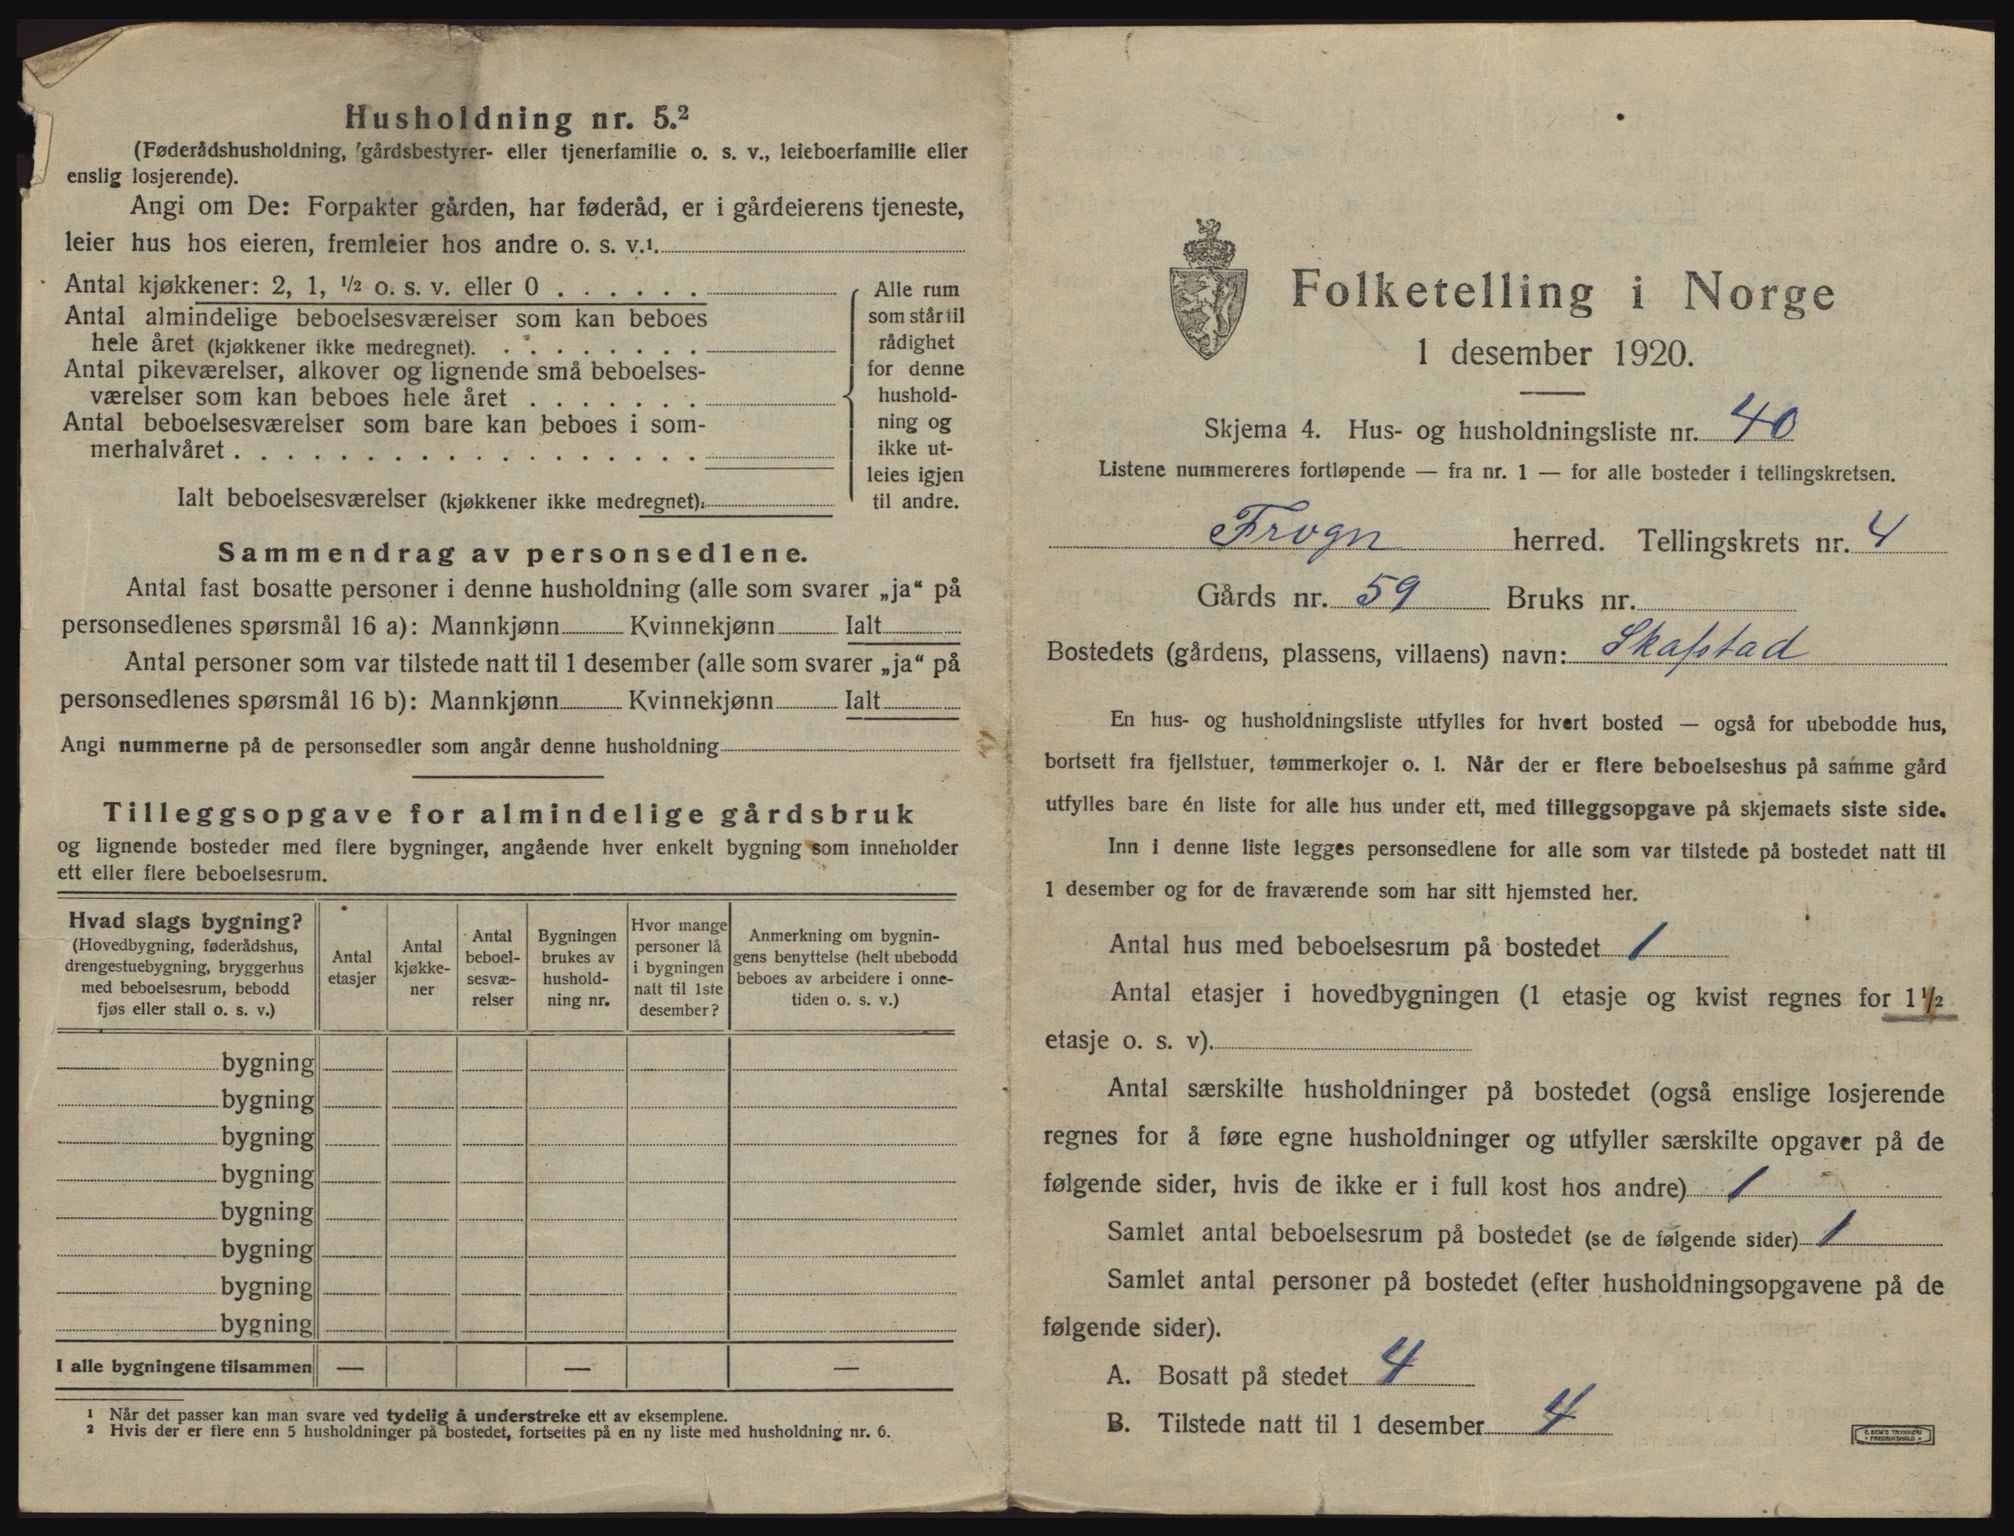 Husholdning nr. 5.²
(Føderådshusholdning, gårdsbestyrer- eller tjenerfamilie o. s. v., leieboerfamilie eller
enslig losjerende).
Angi om De: Forpakter gården, har føderåd, er i gårdeierens tjeneste,
leier hus hos eieren, fremleier hos andre o. s. v.¹.
Antal kjøkkener: 2, 1, ½ o. s. v. eller 0 . . . . . .
Antal almindelige beboelsesværelser som kan beboes
hele året (kjøkkener ikke medregnet). . . . . . . . .
Antal pikeværelser, alkover og lignende små beboelses-
værelser som kan beboes hele året . . . . . . .
Antal beboelsesværelser som bare kan beboes i som-
merhalvåret . . . . . . . . . . . . . . . . . .
Ialt beboelsesværelser (kjøkkener ikke medregnet):
Alle rum
som står til
rådighet
for denne
hushold-
ning og
ikke ut-
leies igjen
til andre.
Sammendrag av personsedlene.
Antal fast bosatte personer i denne husholdning (alle som svarer „ja“ på
personsedlenes spørsmål 16 a): Mannkjønn Kvinnekjønn Ialt
Antal personer som var tilstede natt til 1 desember (alle som svarer „ja“ på
personsedlenes spørsmål 16 b): Mannkjønn Kvinnekjønn Ialt
Angi nummerne på de personsedler som angår denne husholdning
Tilleggsopgave for almindelige gårdsbruk
og lignende bosteder med flere bygninger, angående hver enkelt bygning som inneholder
ett eller flere beboelsesrum.
Hvad slags bygning?
(Hovedbygning, føderådshus,
drengestuebygning, bryggerhus
med beboelsesrum, bebodd
fjøs eller stall o. s. v.)
Antal
etasjer
Antal
kjøkke-
ner
Antal
beboel-
sesvæ-
relser
Bygningen
brukes av
hushold-
ning nr.
Hvor mange
personer lå
i bygningen
natt til 1ste
desember?
Anmerkning om bygnin-
gens benyttelse (helt ubebodd
beboes av arbeidere i onne-
tiden o. s. v.)
bygning
bygning
bygning
bygning
bygning
bygning
bygning
bygning
I alle bygningene tilsammen — — —
¹ Når det passer kan man svare ved tydelig å understreke ett av eksemplene.
² Hvis der er flere enn 5 husholdninger på bostedet, fortsettes på en ny liste med husholdning nr. 6.
Folketelling i Norge
1 desember 1920.
Skjema 4. Hus- og husholdningsliste nr. 40
Listene nummereres fortløpende — fra nr. 1 — for alle bosteder i tellingskretsen.
Frogn herred. Tellingskrets nr. 4
Gårds nr. 59 Bruks nr.
Bostedets (gårdens, plassens, villaens) navn: Skafstad
En hus- og husholdningsliste utfylles for hvert bosted — også for ubebodde hus,
bortsett fra fjellstuer, tømmerkojer o. l. Når der er flere beboelseshus på samme gård
utfylles bare én liste for alle hus under ett, med tilleggsopgave på skjemaets siste side.
Inn i denne liste legges personsedlene for alle som var tilstede på bostedet natt til
1 desember og for de fraværende som har sitt hjemsted her.
Antal hus med beboelsesrum på bostedet 1
Antal etasjer i hovedbygningen (1 etasje og kvist regnes for 1½
etasje o. s. v).
Antal særskilte husholdninger på bostedet (også enslige losjerende
regnes for å føre egne husholdninger og utfyller særskilte opgaver på de
følgende sider, hvis de ikke er i full kost hos andre) 1
Samlet antal beboelsesrum på bostedet (se de følgende sider) 1
Samlet antal personer på bostedet (efter husholdningsopgavene på de
følgende sider).
A. Bosatt på stedet 4
B. Tilstede natt til 1 desember 4
E. SEM'S TRYKKERI
FREDRIKSHALD